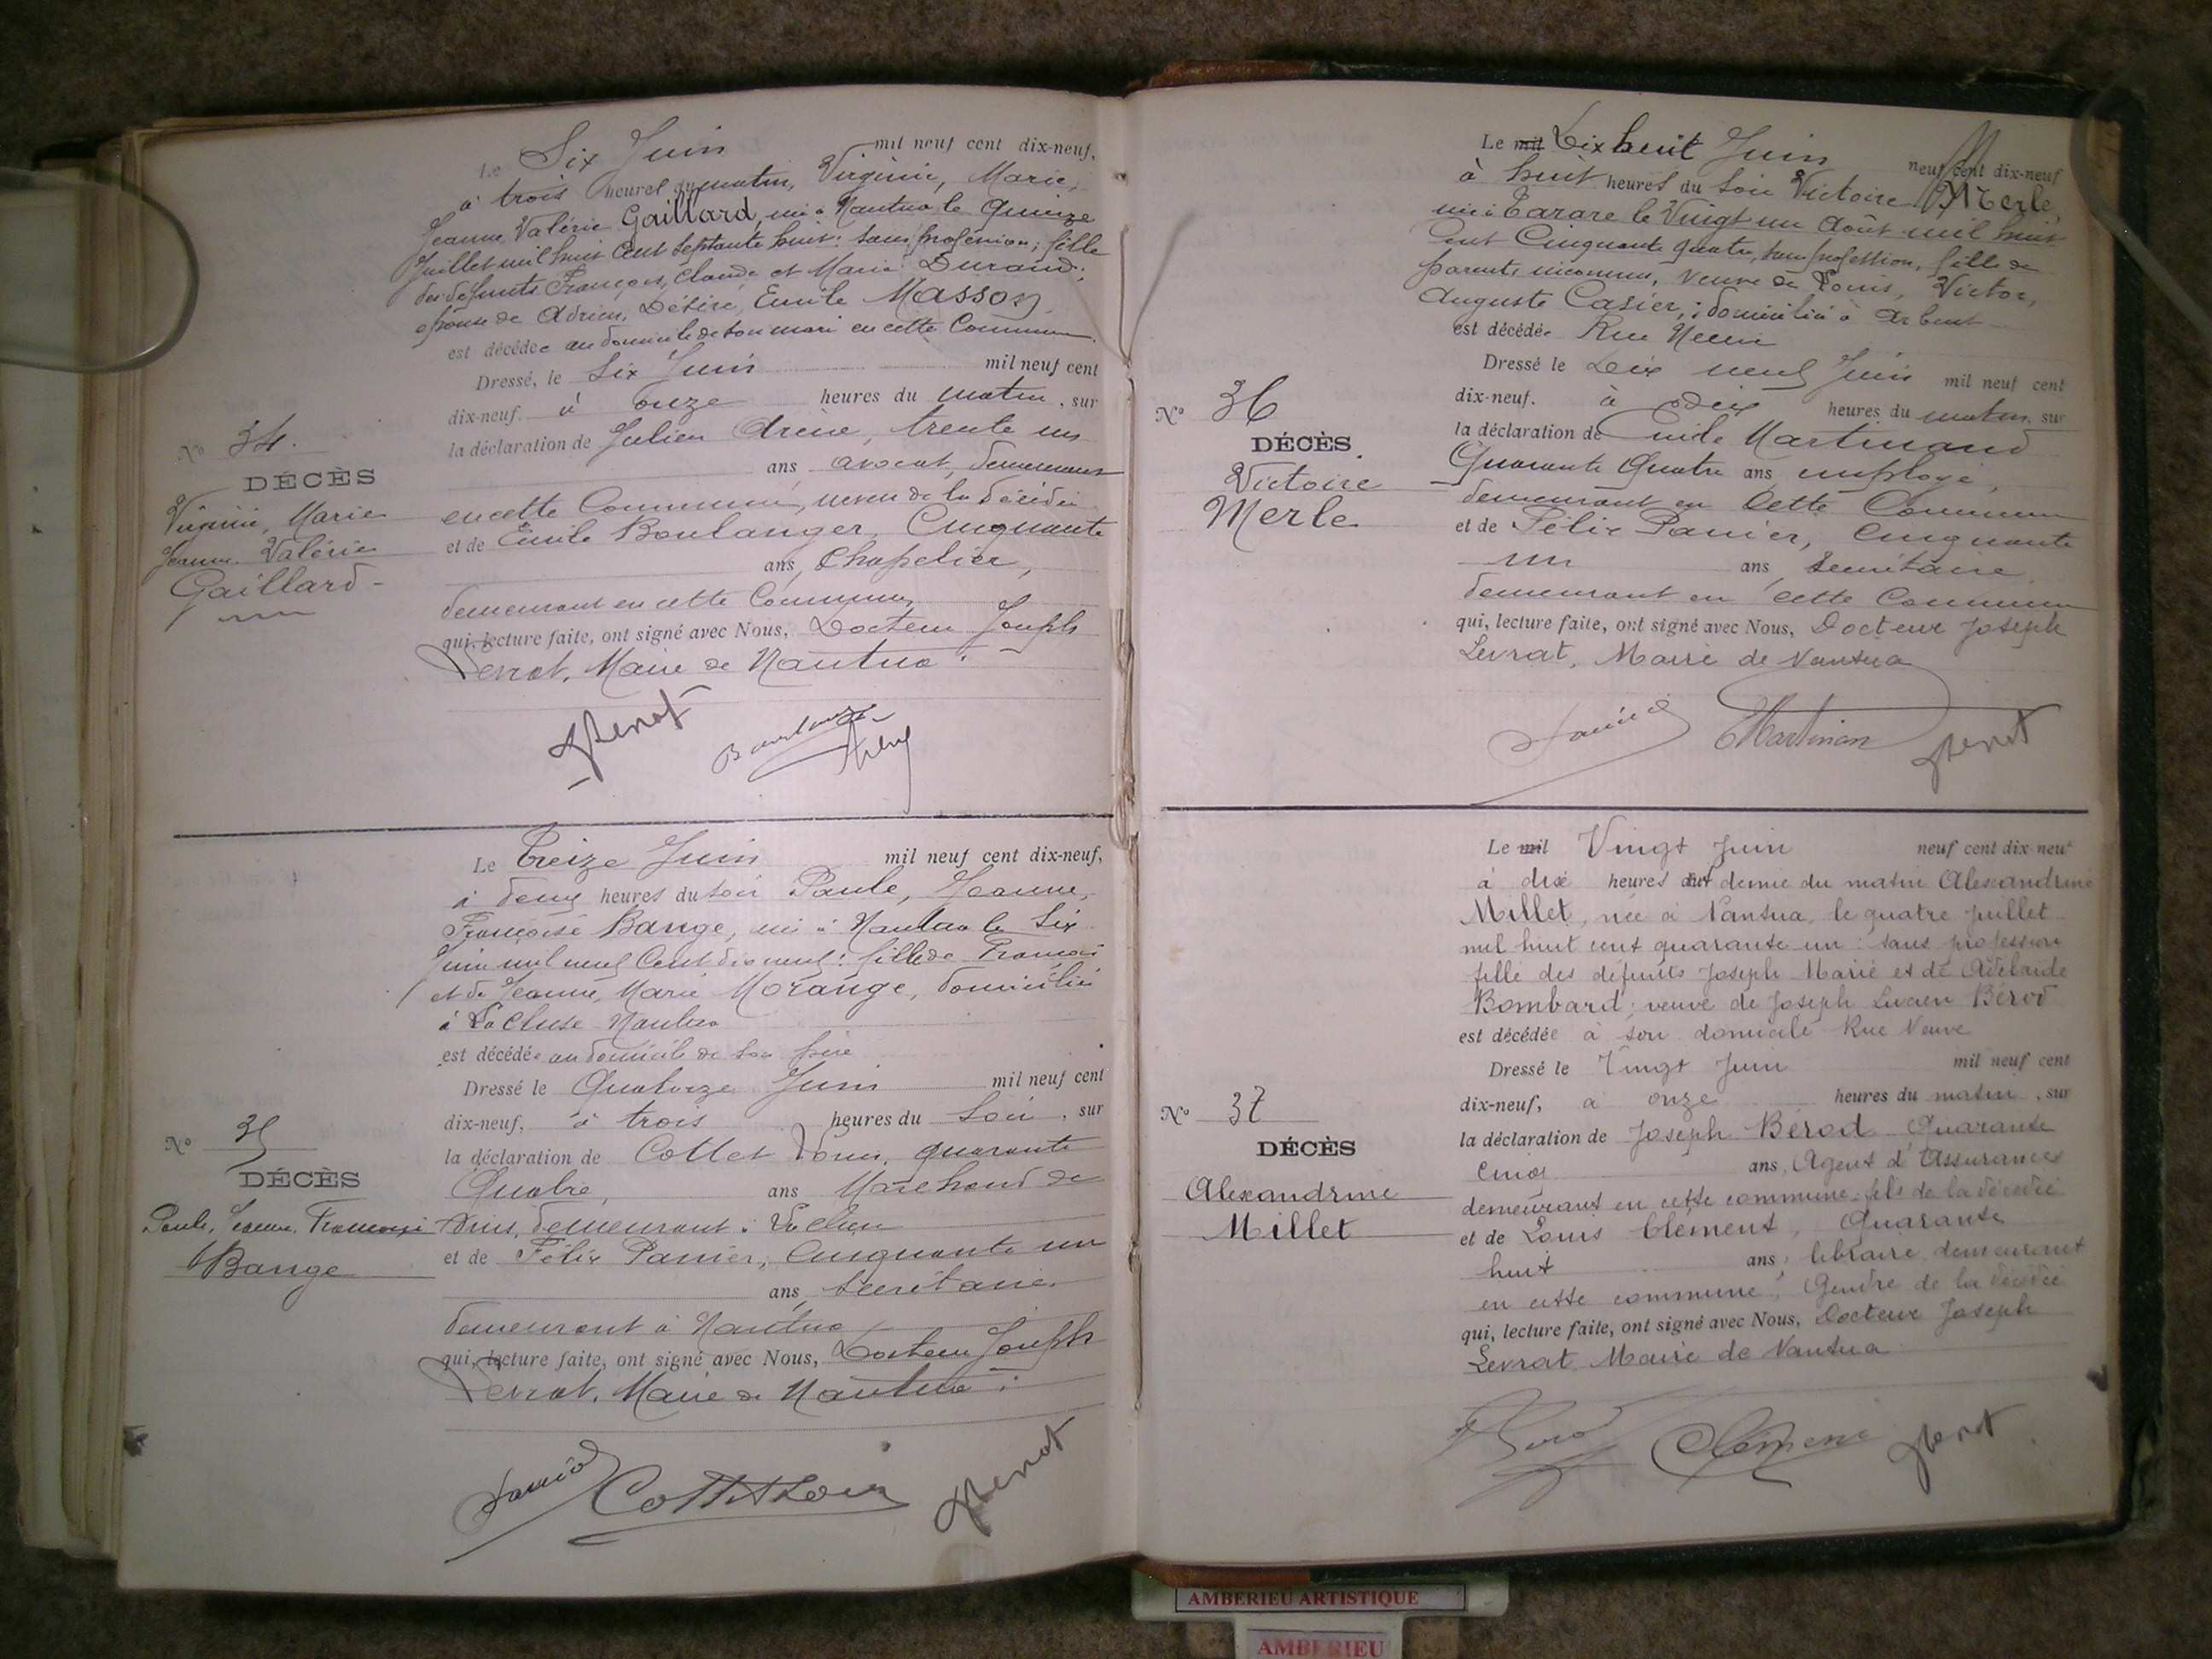 Le Six Juin mil neuf cent dix-neuf,
à trois heures du matin, Virginie, Marie,
Jeanne, Valérie Gaillard, née à Nantua le Quinze
Juillet mil huit cent septante huit: sans profession; fille
des défunts François, Claude et Marie Durand;
épouse de Adrien, Désiré, Emile Masson
est décédée au domicile de son mari en cette Commune.
Dressé, le Six Juin mil neuf cent
dix-neuf, à onze heures du matin, sur
la déclaration de Julien Arène, trente un
ans, avocat, demeurant
en cette Commune, neveu de la décédée
et de Emile Boulanger, Cinquante
ans, Chapelier,
demeurant en cette Commune,
qui, lecture faite, ont signé avec Nous, Docteur Joseph
Levrat, Maire de Nantua.
No 34.
DÉCÈS
Virginie, Marie
Jeanne Valérie
Gaillard
Le Treize Juin mil neuf cent dix-neuf,
à deux heures du soir Paule, Jeanne,
Françoise Bange, née à Nantua le Six
Juin mil neuf Cent dix neuf: fille de François
et de Jeanne, Marie Morange, domiciliés
à La Cluse Nantua
est décédée au domicile de son père
Dressé le Quatorze Juin mil neuf cent
dix-neuf, à trois heures du Soir, sur
la déclaration de Collet Louis, quarante
Quatre, ans Marchand de
demeurant à
et de Félix Panier, Cinquante un
ans, Secrétaire
demeurant à Nantua
qui, lecture faite, ont signé avec Nous, Docteur Joseph
Levrat, Maire de Nantua.
No 35
DÉCÈS
Paule, Jeanne, Françoise
Bange
Le mil Dix huit Juin neuf cent dix-neuf
à huit heures du soir Victoire Merle,
née à Tarare le Vingt un Août mil huit
cent Cinquante quatre, sans profession, fille de
parents inconnus, veuve de Louis, Victor,
Auguste Casier; domiciliée à Arbent
est décédée Rue Neuve
Dressé le Dix neuf Juin mil neuf cent
dix-neuf. à dix heures du matin, sur
la déclaration de Emile Martinand
Quarante Quatre ans, employé,
demeurant en Cette Commune
et de Félix Panier, Cinquante
un ans, Secrétaire
demeurant en cette Commune
qui, lecture faite, ont signé avec Nous, Docteur Joseph
Levrat, Maire de Nantua
No 36
DÉCÈS.
Victoire
Merle
Le mil Vingt Juin neuf cent dix neuf
à dix heures et demie du matin Alexandrine
Millet, née à Nantua, le quatre juillet
mil huit cent quarante un: sans profession
fille des défunts Joseph Marie et de Adélaïde
Bombard; veuve de Joseph Lucien Bérod
est décédée à son domicile Rue Neuve
Dressé le Vingt Juin mil neuf cent
dix-neuf, à onze heures du matin, sur
la déclaration de Joseph Bérod Quarante
cinq ans, Agent d'Assurances
demeurant en cette commune fils de la décédée
et de Louis Clément, Quarante
huit ans, libraire, demeurant
en cette commune, Gendre de la décédée
qui, lecture faite, ont signé avec Nous, Docteur Joseph
Levrat Maire de Nantua
No 37
DÉCÈS
Alexandrine
Millet
AMBERIEU ARTISTIQUE
AMBERIEU